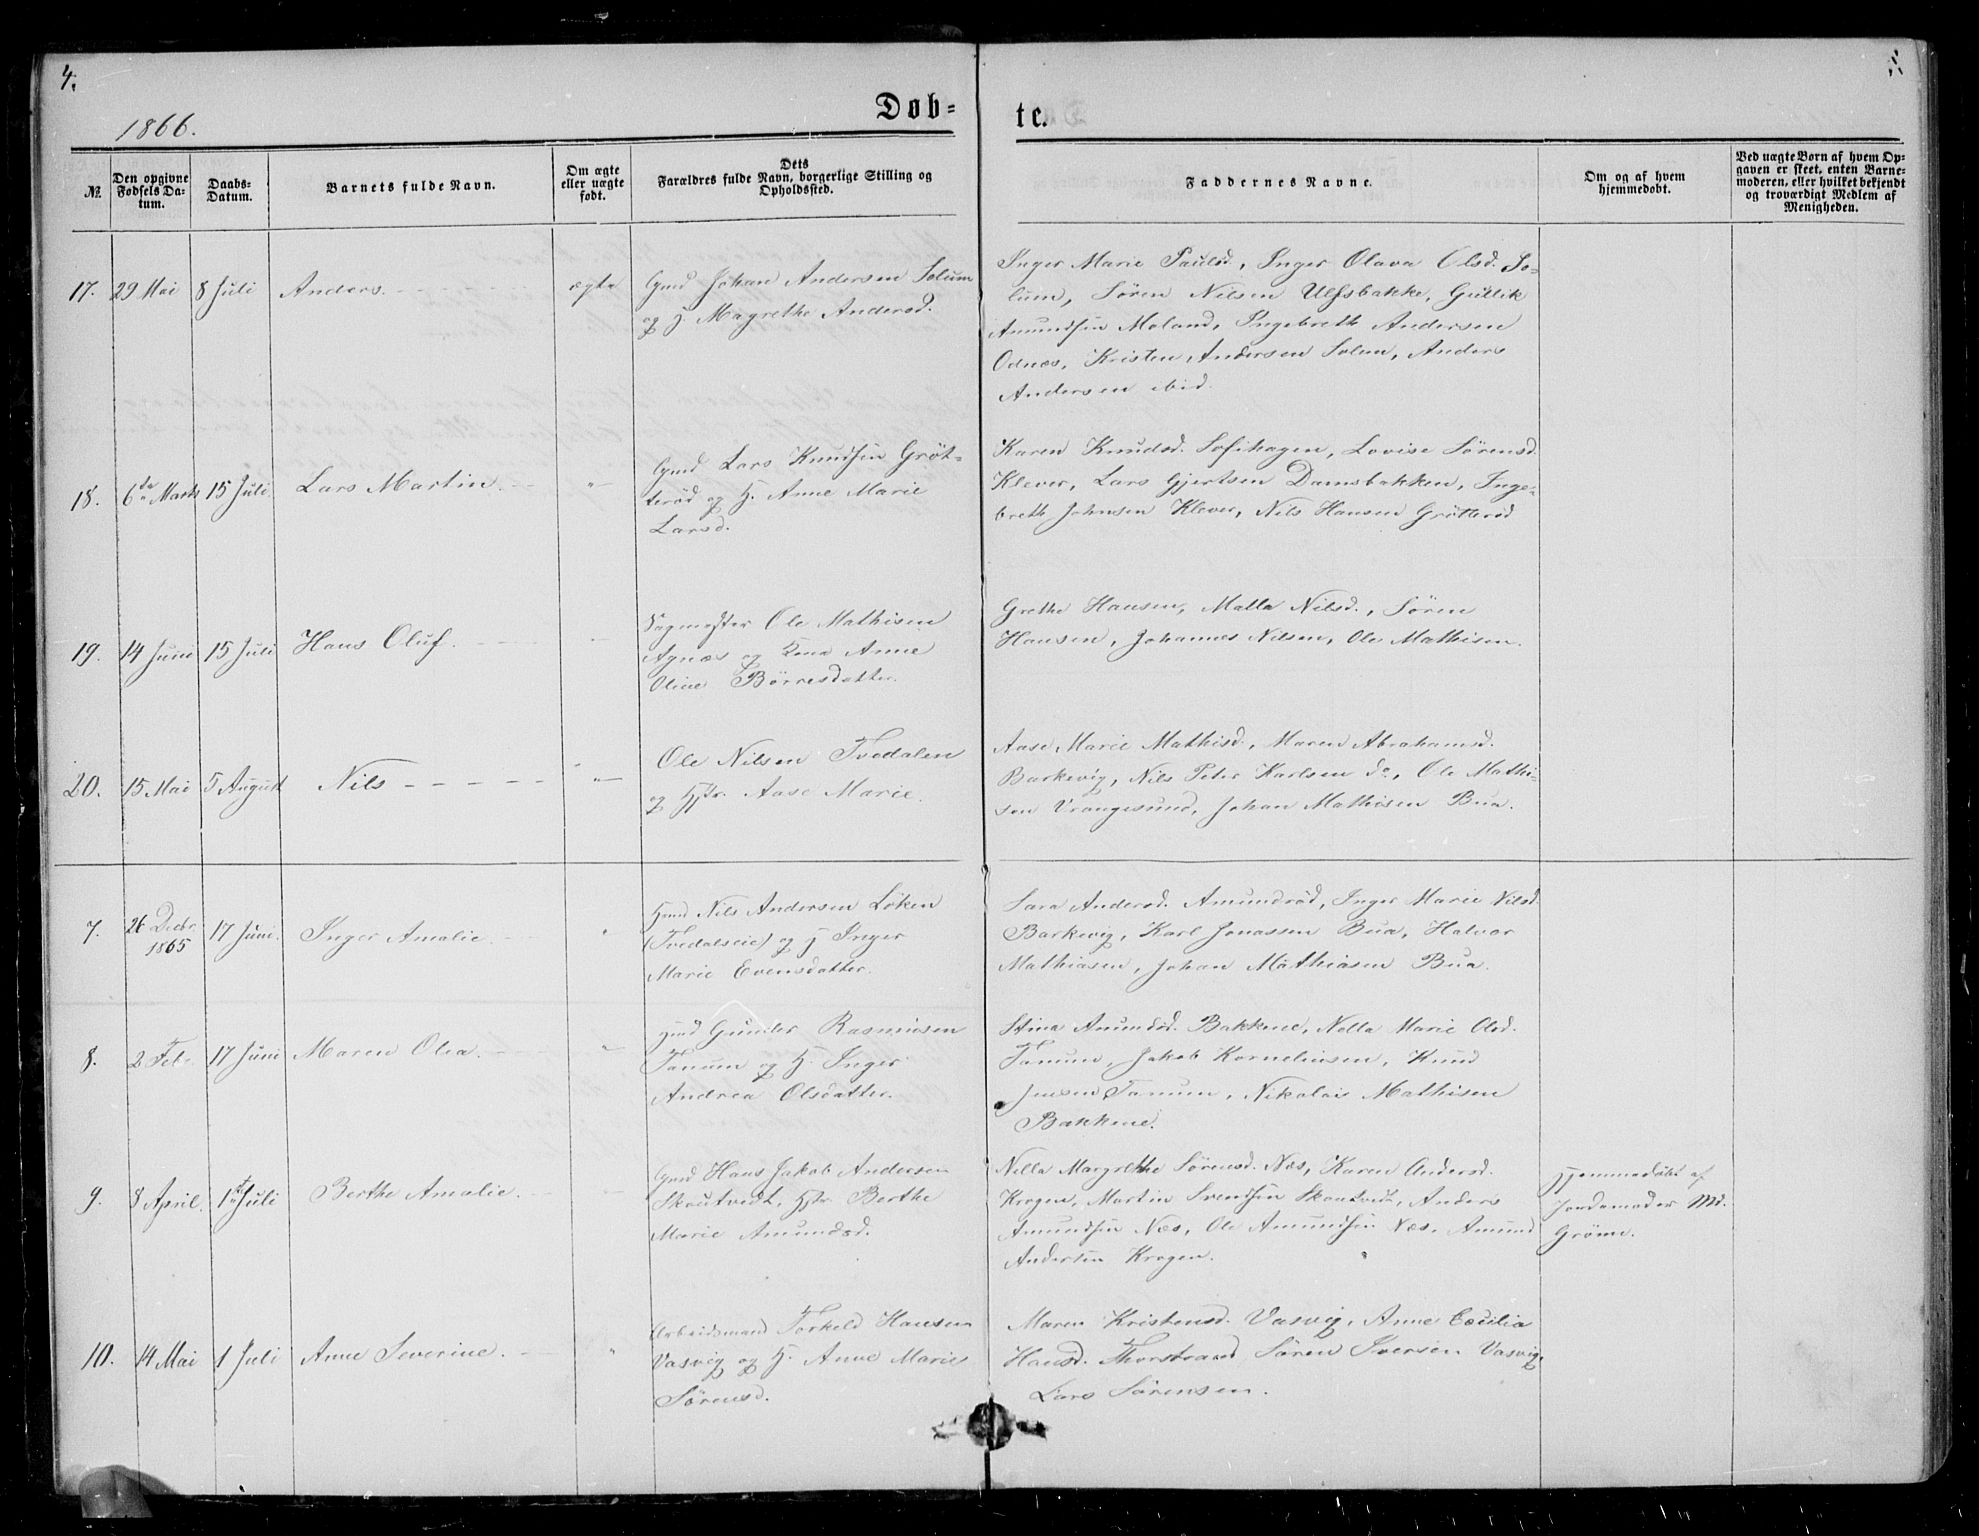 4.
1866.
Døb-
te.
No.
Den opgivne Fødsels Da-tum.
Daabs-Datum.
Barnets fulde Navn.
Om ægte eller uægte født.
Dets Forældres fulde Navn, borgerlige Stilling og Opholdssted.
Faddernes Navne.
Om og af hvem hjemmedøbt.
Ved uægte Børn af hvem Op-gaven er skeet, enten Barne-moderen, eller hvilket bekjendt og troværdigt Medlem af Menigheden.
17. 29 Mai 8 Juli Anders. ægte
Gmd Johan Andersen Solum
og H. Magrethe Andersd.
Inger Marie Paulsd, Inger Olava Olsd. So-
lum, Sören Nilsen Ulfsbakke, Gullik
Amundsen Moland, Ingebreth Andersen
Odnæs, Kristen Andersen Solum, Anders
Andersen ibid.
18. 6te Marts 15 Juli Lars Martin. "
Gmd Lars Knudsen Gröt-
teröd og H. Anne Marie
Larsd.
Karen Knudsd. Sofihagen, Lovise Sörensd.
Klever, Lars Gjertsen Damsbakken, Inge-
breth Johnsen Klever, Nils Hansen Grötteröd
19. 14 Juni 15 Juli Hans Oluf.
Sagmester Ole Mathisen
Agnæs og Kona Anne
Oline Börresdatter.
Grethe Hansen, Malla Nilsd., Sören
Hansen, Johannes Nilsen, Ole Mathisen.
20. 15 Mai 5 August Nils
Ole Nilsen Tvedalen
og Hstr. Aase Marie.
Aase Marie Mathisd., Maren Abrahamsd.
Barkevig, Nils Peter Karlsen do, Ole Mathi-
sen Vrangesund, Johan Mathisen Bua.
7. 26 Decbr 1865 17 Juni. Inger Amalie. "
Hmd Nils Andersen Löken
(Tvedalseie) og H Inger
Marie Evensdatter.
Sara Andersd. Amundröd, Inger Marie Nilsd.
Barkevig, Karl Jonassen Bua, Halvor
Mathiasen, Johan Mathiasen Bua.
8. 2 Feb. 17 Juni Maren Olea. "
Hmd Gunder Rasmusen
Tanum og H. Inger
Andrea Olsdatter.
Stina Amundsd. Bakkene, Nella Marie Olsd.
Tanum, Jakob Korneliusen, Knud
Jensen Tanum, Nikolai Mathisen
Bakkene.
9. 8 April. 1ste Juli Berthe Amalie.
Gmd Hans Jakob Andersen
Skoutvedt, Hstr. Berthe
Marie Amundsd.
Nella Margrethe Sörensd. Næs, Karen Andersd.
Krogen, Martin Svendsen Skoutvedt, Anders
Amundsen Næs, Ole Amundsen Næs, Amund
Andersen Krogen.
Hjemmedöbt af
Jordemoder Md.
Gröme.
10. 14 Mai 1 Juli Anne Severine. "
Arbeidsmand Torkeld Hansen
Vasvig og H. Anne Marie
Sörensd.
Maren Kristensd. Vasvig, Anne Cecilia
Hansd. Thorstrand Sören Iversen Vasvig,
Lars Sörensen.